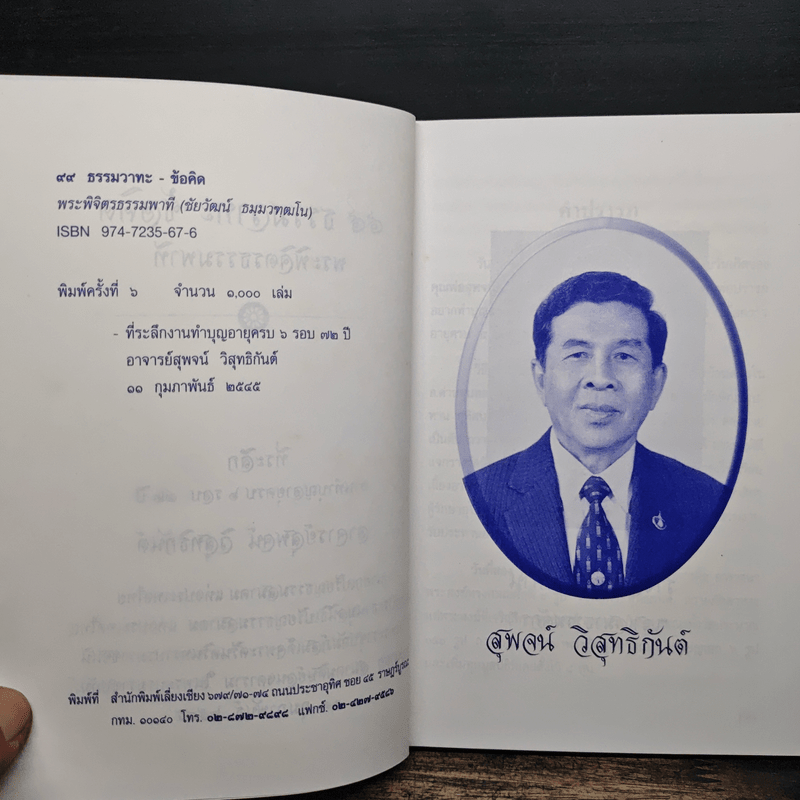 ๙๙ ธรรมวาทะ - ข้อคิด
พระพิจิตรธรรมพาที (ชัยวัฒน์ ธมฺมวฑฺฒโน)
ISBN 974-7235-67-6
พิมพ์ครั้งที่ ๖ จำนวน ๑,๐๐๐ เล่ม
- ที่ระลึกงานทำบุญอายุครบ ๖ รอบ ๗๒ ปี
อาจารย์สุพจน์ วิสุทธิกันต์
๑๑ กุมภาพันธ์ ๒๕๔๕
พิมพ์ที่ สำนักพิมพ์เลี่ยงเชียง ๖๗๙/๗๑-๗๔ ถนนประชาอุทิศ ซอย ๔๕ ราษฎร์บูรณะ
กทม. ๑๐๑๔๐ โทร. ๐๒-๘๗๒-๙๘๙๘ แฟกซ์. ๐๒-๔๒๗-๙๕๘๖
สุพจน์ วิสุทธิกันต์